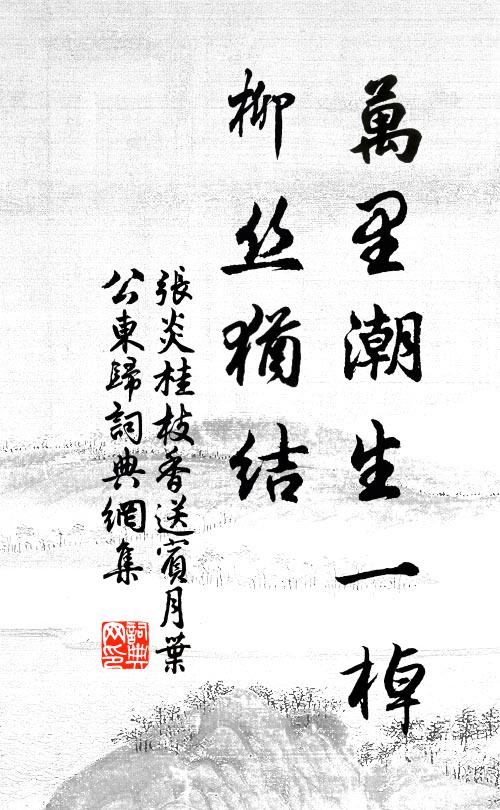 萬里潮生一棹
柳丝猶结
張炎桂枝香送賓月葉
公東歸詞典網集
詞典网印